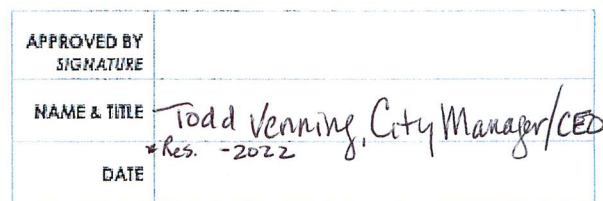 APPROVED BY
SIGNATURE
NAME & TITLE Todd Venning, City Manager/CEO
*Res. -2022
DATE